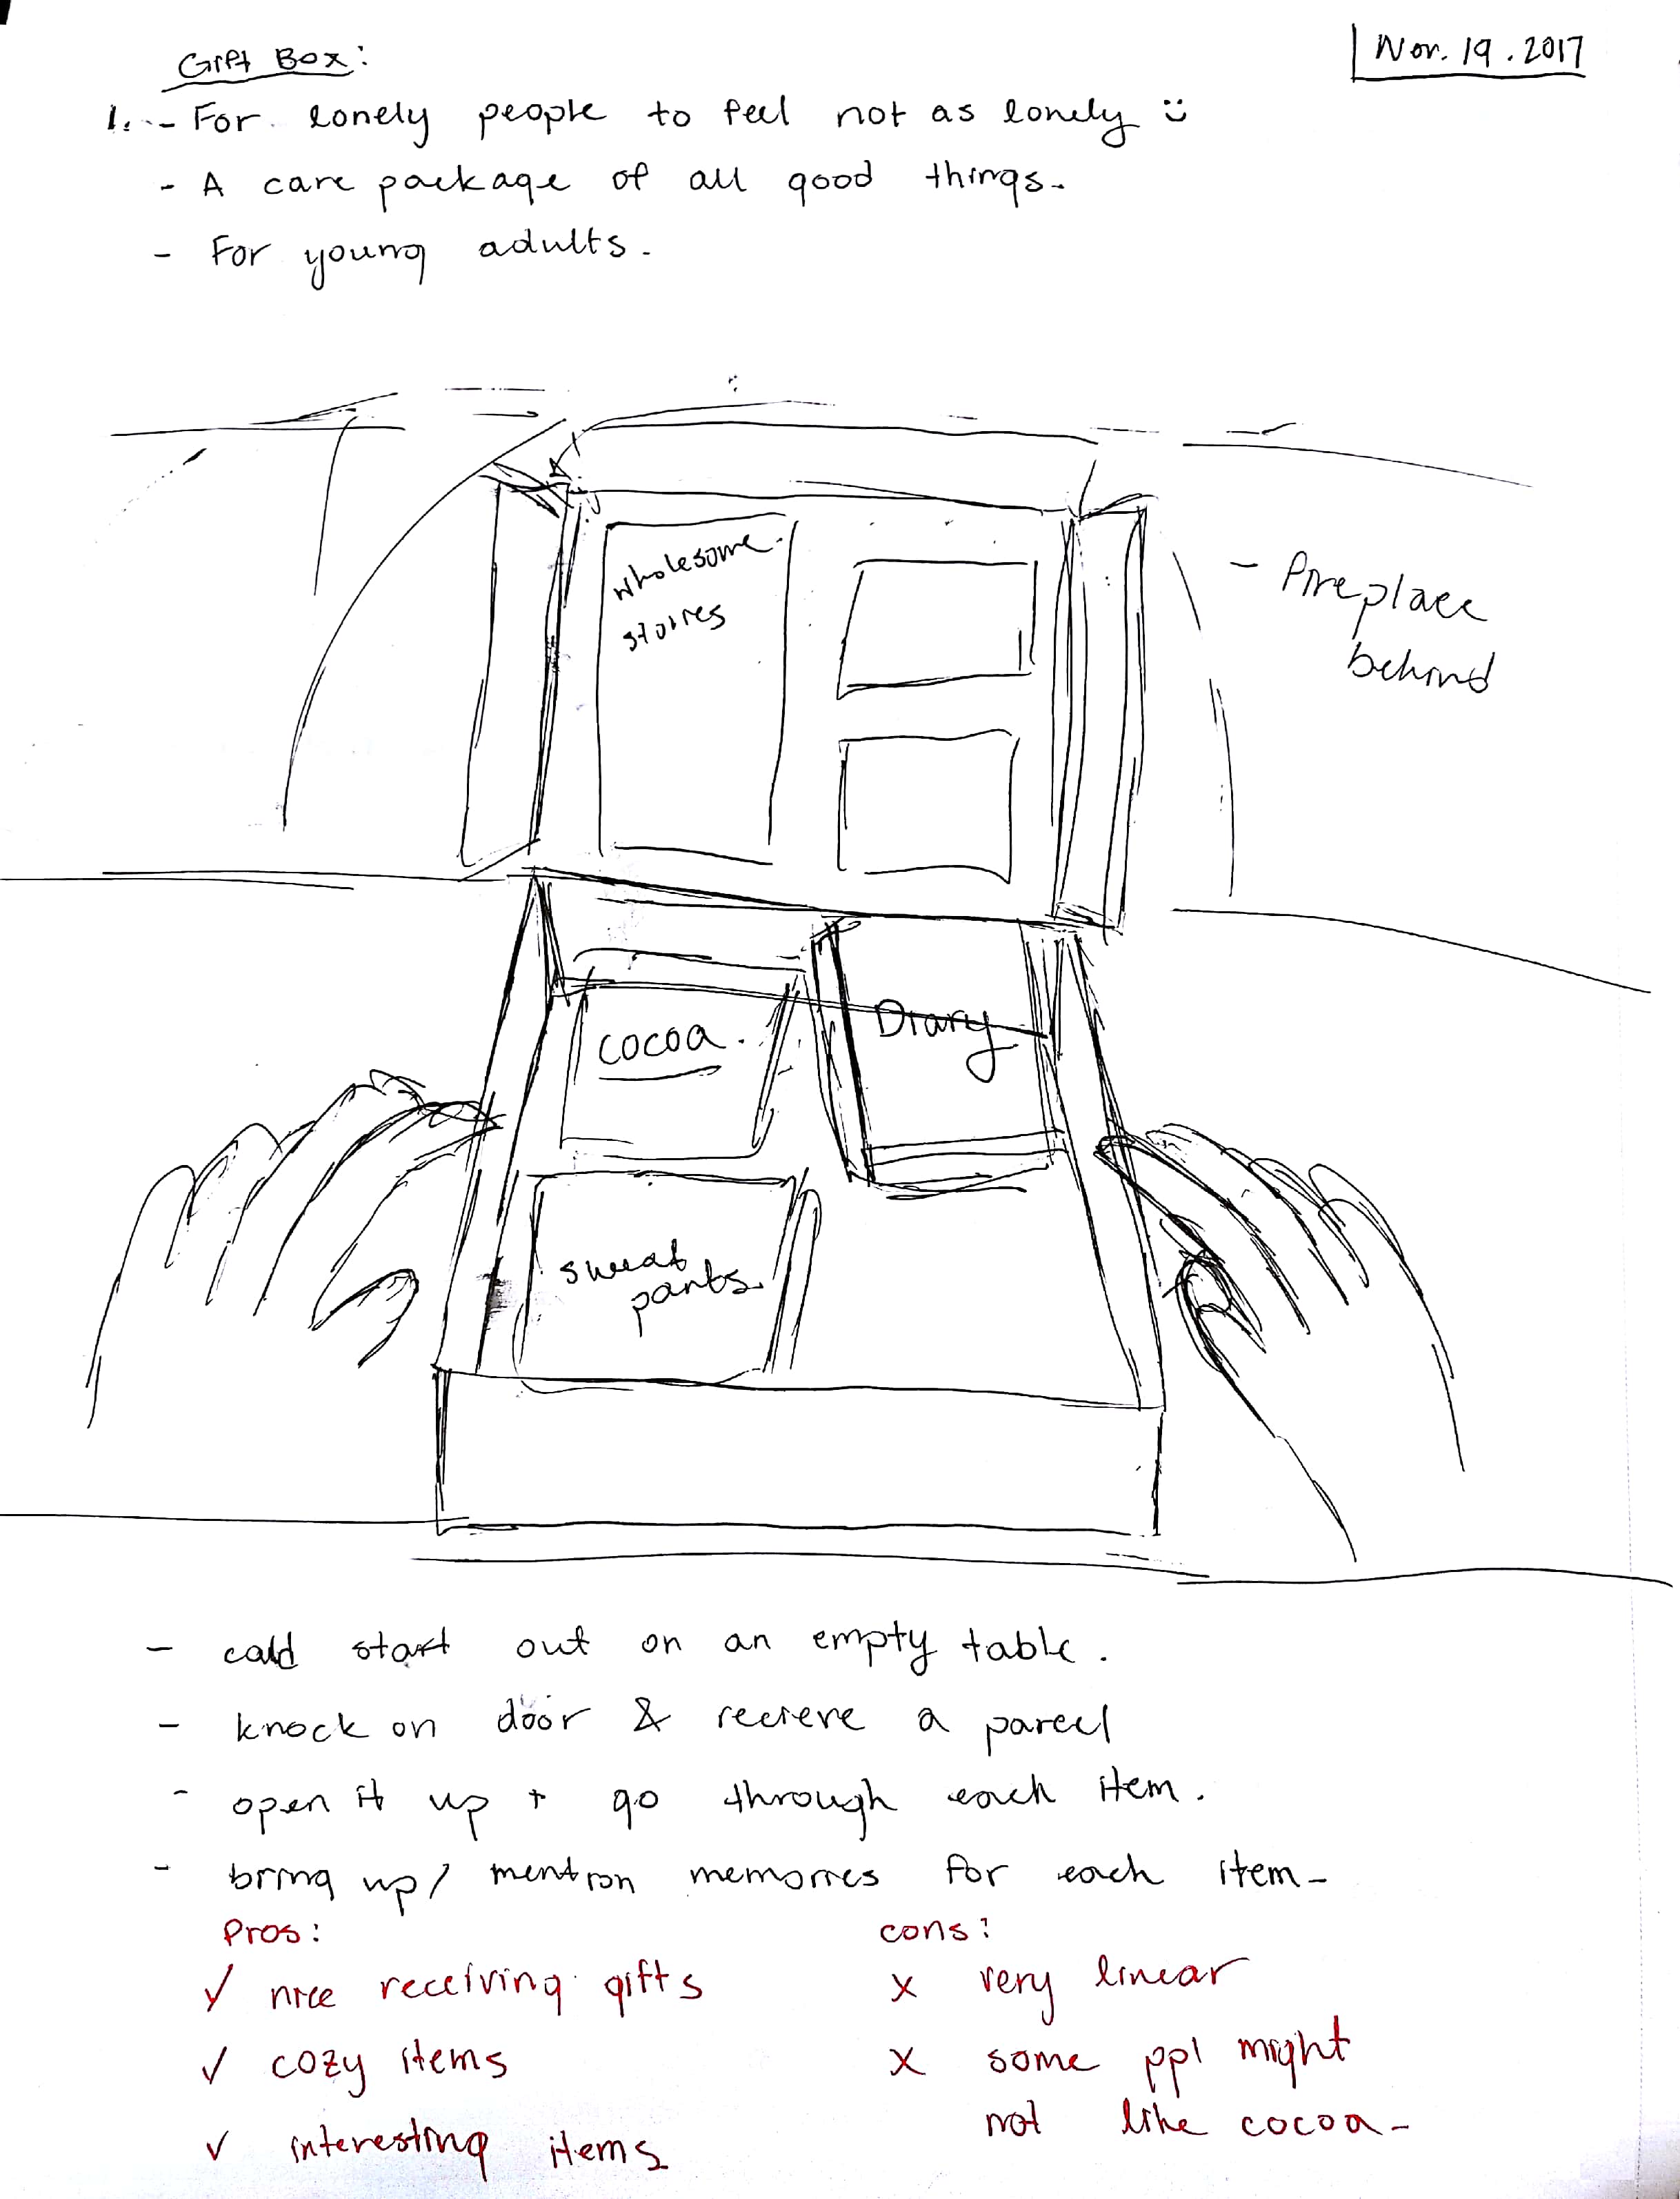 Gift Box:
Nov. 19. 2017
1. - For lonely people to feel not as lonely :)
- A care package of all good things.
- For young adults.
wholesome
stories
- fireplace
behind
cocoa.
Diary
sweat
pants.
- could start out on an empty table.
- knock on door & recieve a parcel
- open it up + go through each item.
- bring up / mention memories for each item-
Pros:
✓ nice receiving gifts
✓ cozy items
✓ interesting items
cons:
x very linear
x some ppl might
not like cocoa-